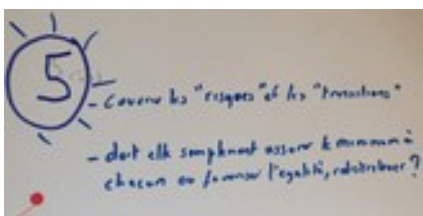 5
- Couvrir les "risques" et les "transitions"
- doit elle simplement assurer le minimum à
chacun ou favoriser l'égalité, redistribuer ?